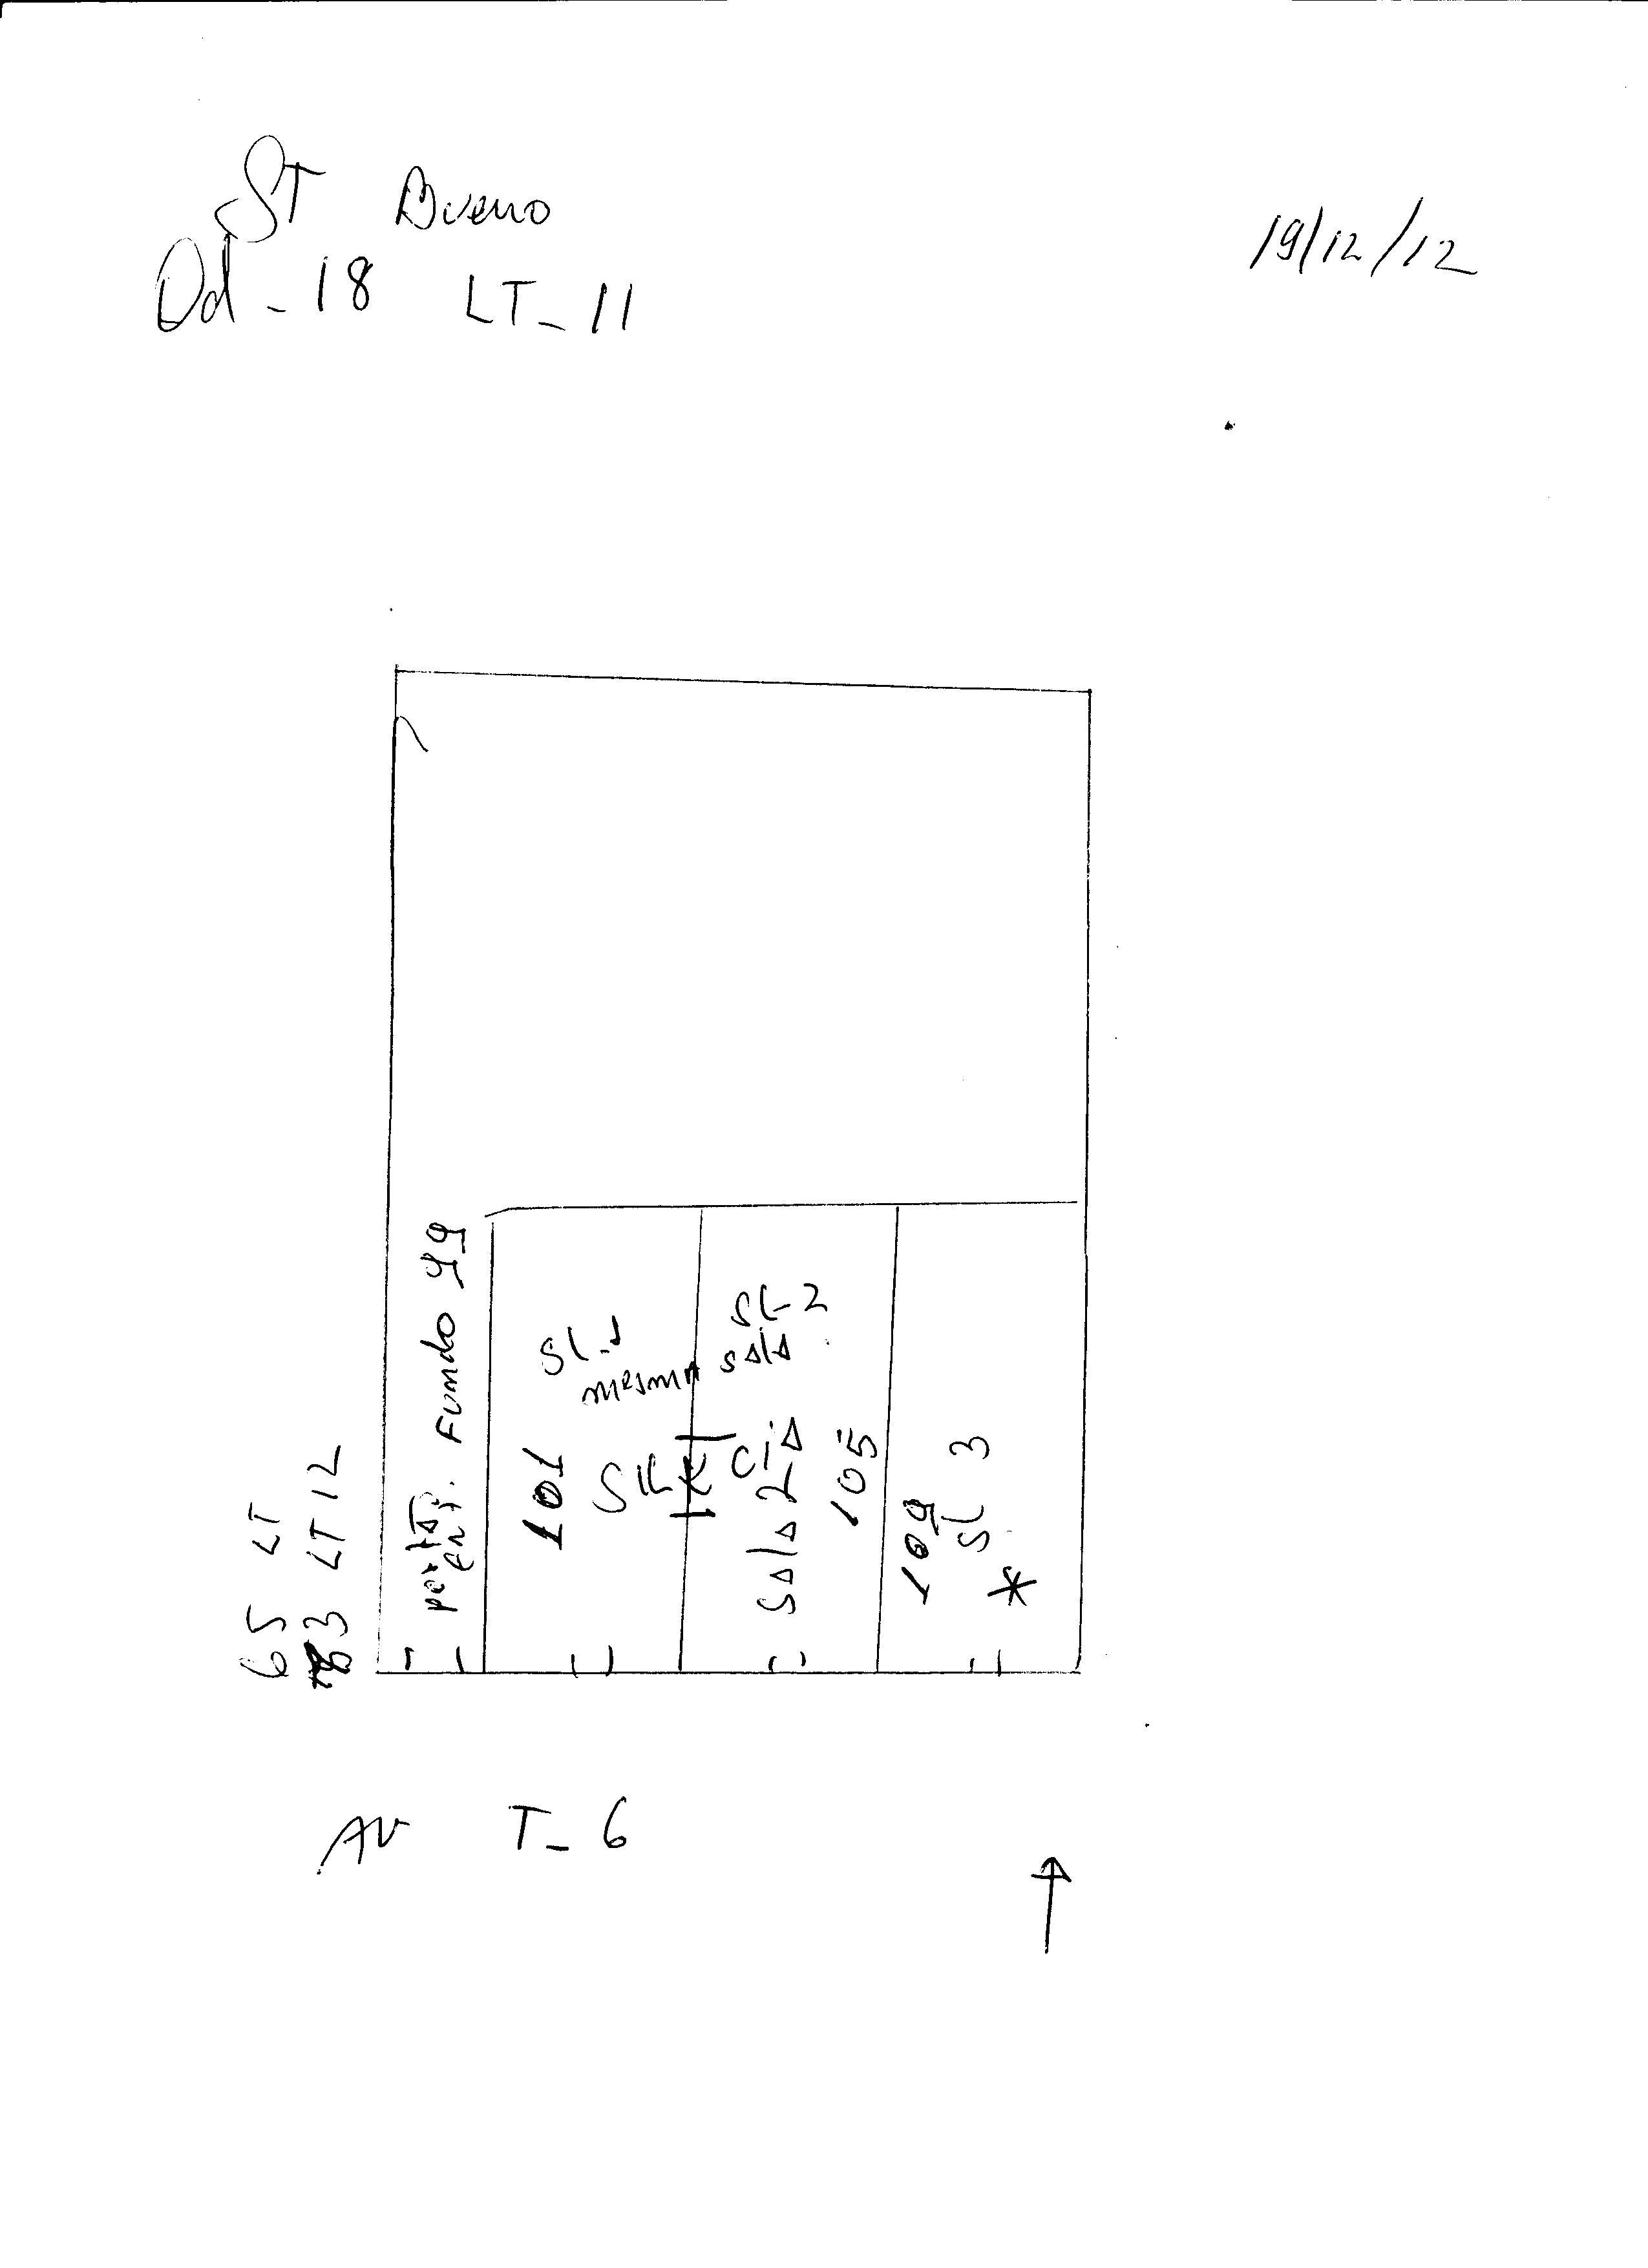 ST Bueno
19/12/12
Qd - 18 LT - 11
65 LT
83 LT 12
portão
ent. Fundo 99
101
SL-1
SL-2
mesma sala
cia
sala 2
105
109
SL 3
*
AV T-6